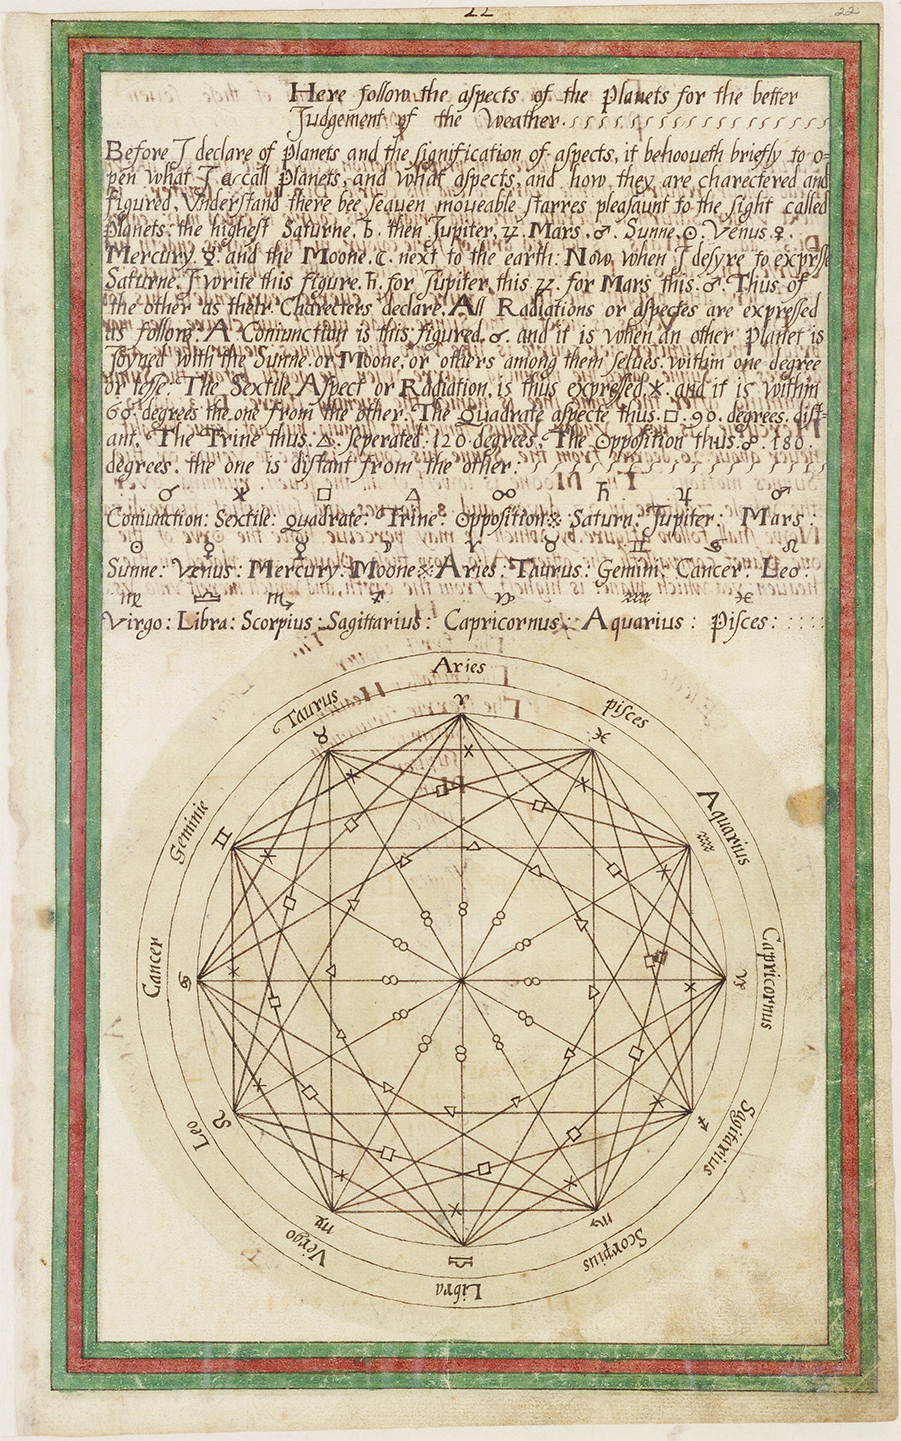 22
22
Here follow the aspects of the Planets for the better
Judgement of the Weather.
Before I declare of planets and the signification of aspects, it behooueth briefly to o-
pen what I call Planets, and what aspects, and how they are charectered and
figured, Vnderstand there bee seauen moueable starres pleasaunt to the sight called
planets: the highest Saturne. ♄. then Jupiter. ♃. Mars. ♂. Sunne. ☉. Venus. ♀.
Mercury. ☿. and the Moone. ☾. next to the earth: Now when I desyre to expresse
Saturne. I write this figure. ♄. for Jupiter this. ♃. for Mars this. ♂. Thus of
the other as their Charecters declare. All Radiations or aspectes are expressed
as follow. A Coniunction is this figured. ☌. and it is when an other Planet is
Joyned with the Sunne. or Moone, or others among them selues. within one degree
or lesse. The Sextile Aspect or Radiation, is thus expressed. ⚹. and it is within
60. degrees the one from the other. The Quadrate aspecte thus. □. 90. degrees. dist-
ant. The Trine thus. △. seperated. 120. degrees. The Opposition thus. ☍. 180.
degrees. the one is distant from the other:
☌ ⚹ □ △ ☍ ♄ ♃ ♂
Coniunction: Sextile: Quadrate: Trine: Opposition: Saturn: Jupiter: Mars:
☉ ♀ ☿ ☽ ♈ ♉ ♊ ♋ ♌
Sunne: Venus: Mercury: Moone: Aries: Taurus: Gemini: Cancer: Leo:
♍ ♎ ♏ ♐ ♑ ♒ ♓
Virgo: Libra: Scorpius: Sagittarius: Capricornus: Aquarius: Pisces:
Aries
♈
pisces
♓
Aquarius
♒
Capricornus
♑
Sagitarius
♐
Scorpius
♏
Libra
♎
Virgo
♍
Leo
♌
Cancer
♋
Geminie
♊
Taurus
♉